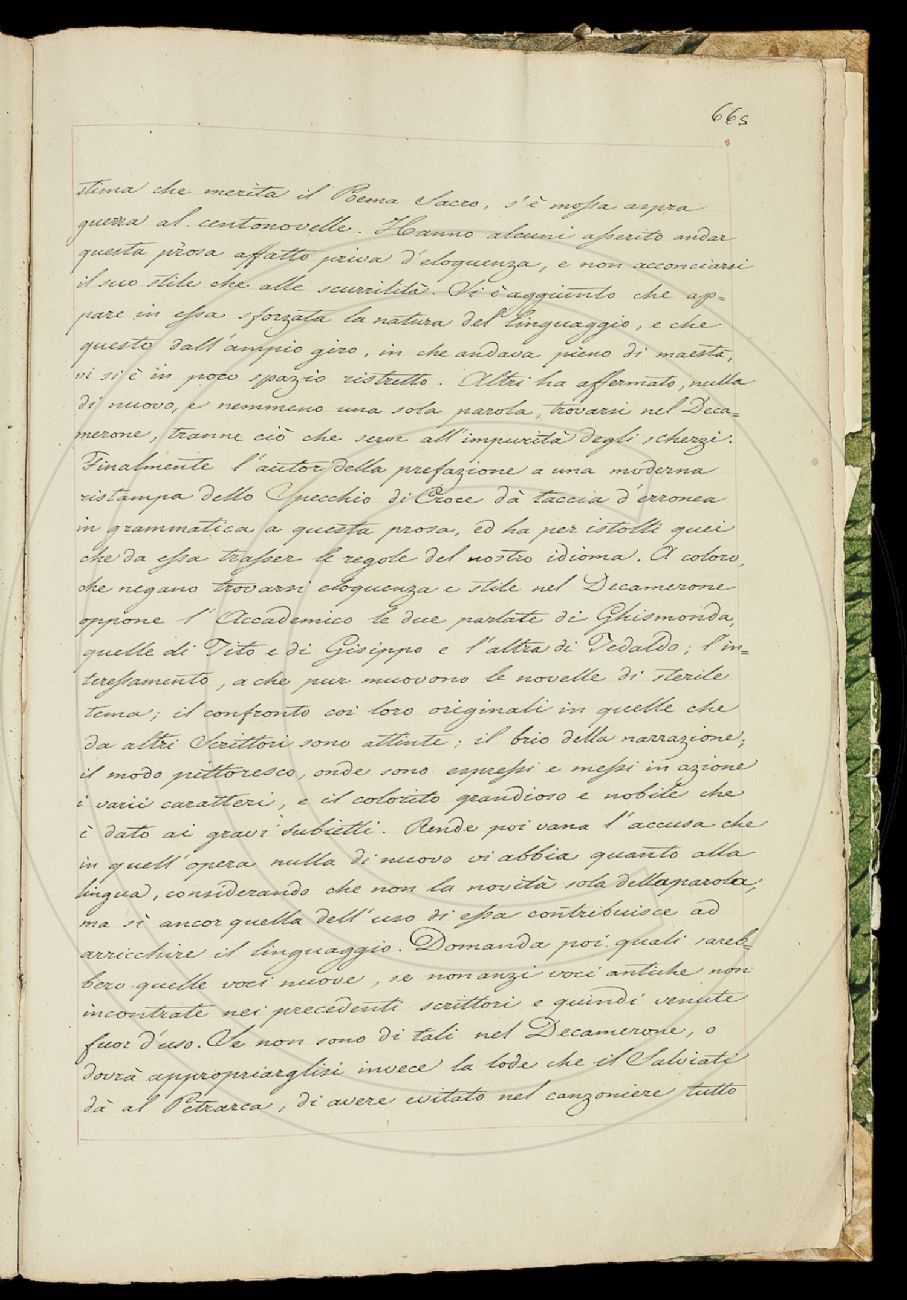 665
stima che merita il Poema Sacro, s'è mossa aspra
guerra al centonovelle. Hanno alcuni asserito andar
questa prosa affatto priva d'eloquenza, e non acconciarsi
il suo stile che alle scurrilità. Si è aggiunto che ap=
pare in essa sforzata la natura del linguaggio, e che
questo dall'ampio giro, in che andava pieno di maestà,
vi si è in poco spazio ristretto. Altri ha affermato, nulla
di nuovo, e nemmeno una sola parola, trovarsi nel Deca=
merone, tranne ciò che serve all'impurità degli scherzi.
Finalmente l'autor della prefazione a una moderna
ristampa dello Specchio di Croce dà taccia d'erronea
in grammatica a questa prosa, ed ha per istolti quei
che da essa trasser le regole del nostro idioma. A coloro,
che negano trovarsi eloquenza e stile nel Decamerone
oppone l'Accademico le due parlate di Ghismonda,
quelle di Tito e di Gisippo e l'altra di Tedaldo; l'in=
teressamento, a che pur muovono le novelle di sterile
tema; il confronto coi loro originali in quelle che
da altri Scrittori sono attinte; il brio della narrazione;
il modo pittoresco, onde sono espressi e messi in azione
i varii caratteri, e il colorito grandioso e nobile che
è dato ai gravi subietti. Rende poi vana l'accusa che
in quell'opera nulla di nuovo vi abbia quanto alla
lingua, considerando che non la novità sola della parola,
ma sì ancor quella dell'uso di essa contribuisce ad
arricchire il linguaggio. Domanda poi quali sareb=
bero quelle voci nuove, se non anzi voci antiche non
incontrate nei precedenti scrittori e quindi venute
fuor d'uso. Se non sono di tali nel Decamerone, o
dovrà appropriarglisi invece la lode che il Salviati
dà al Petrarca, di avere evitato nel canzoniere tutto